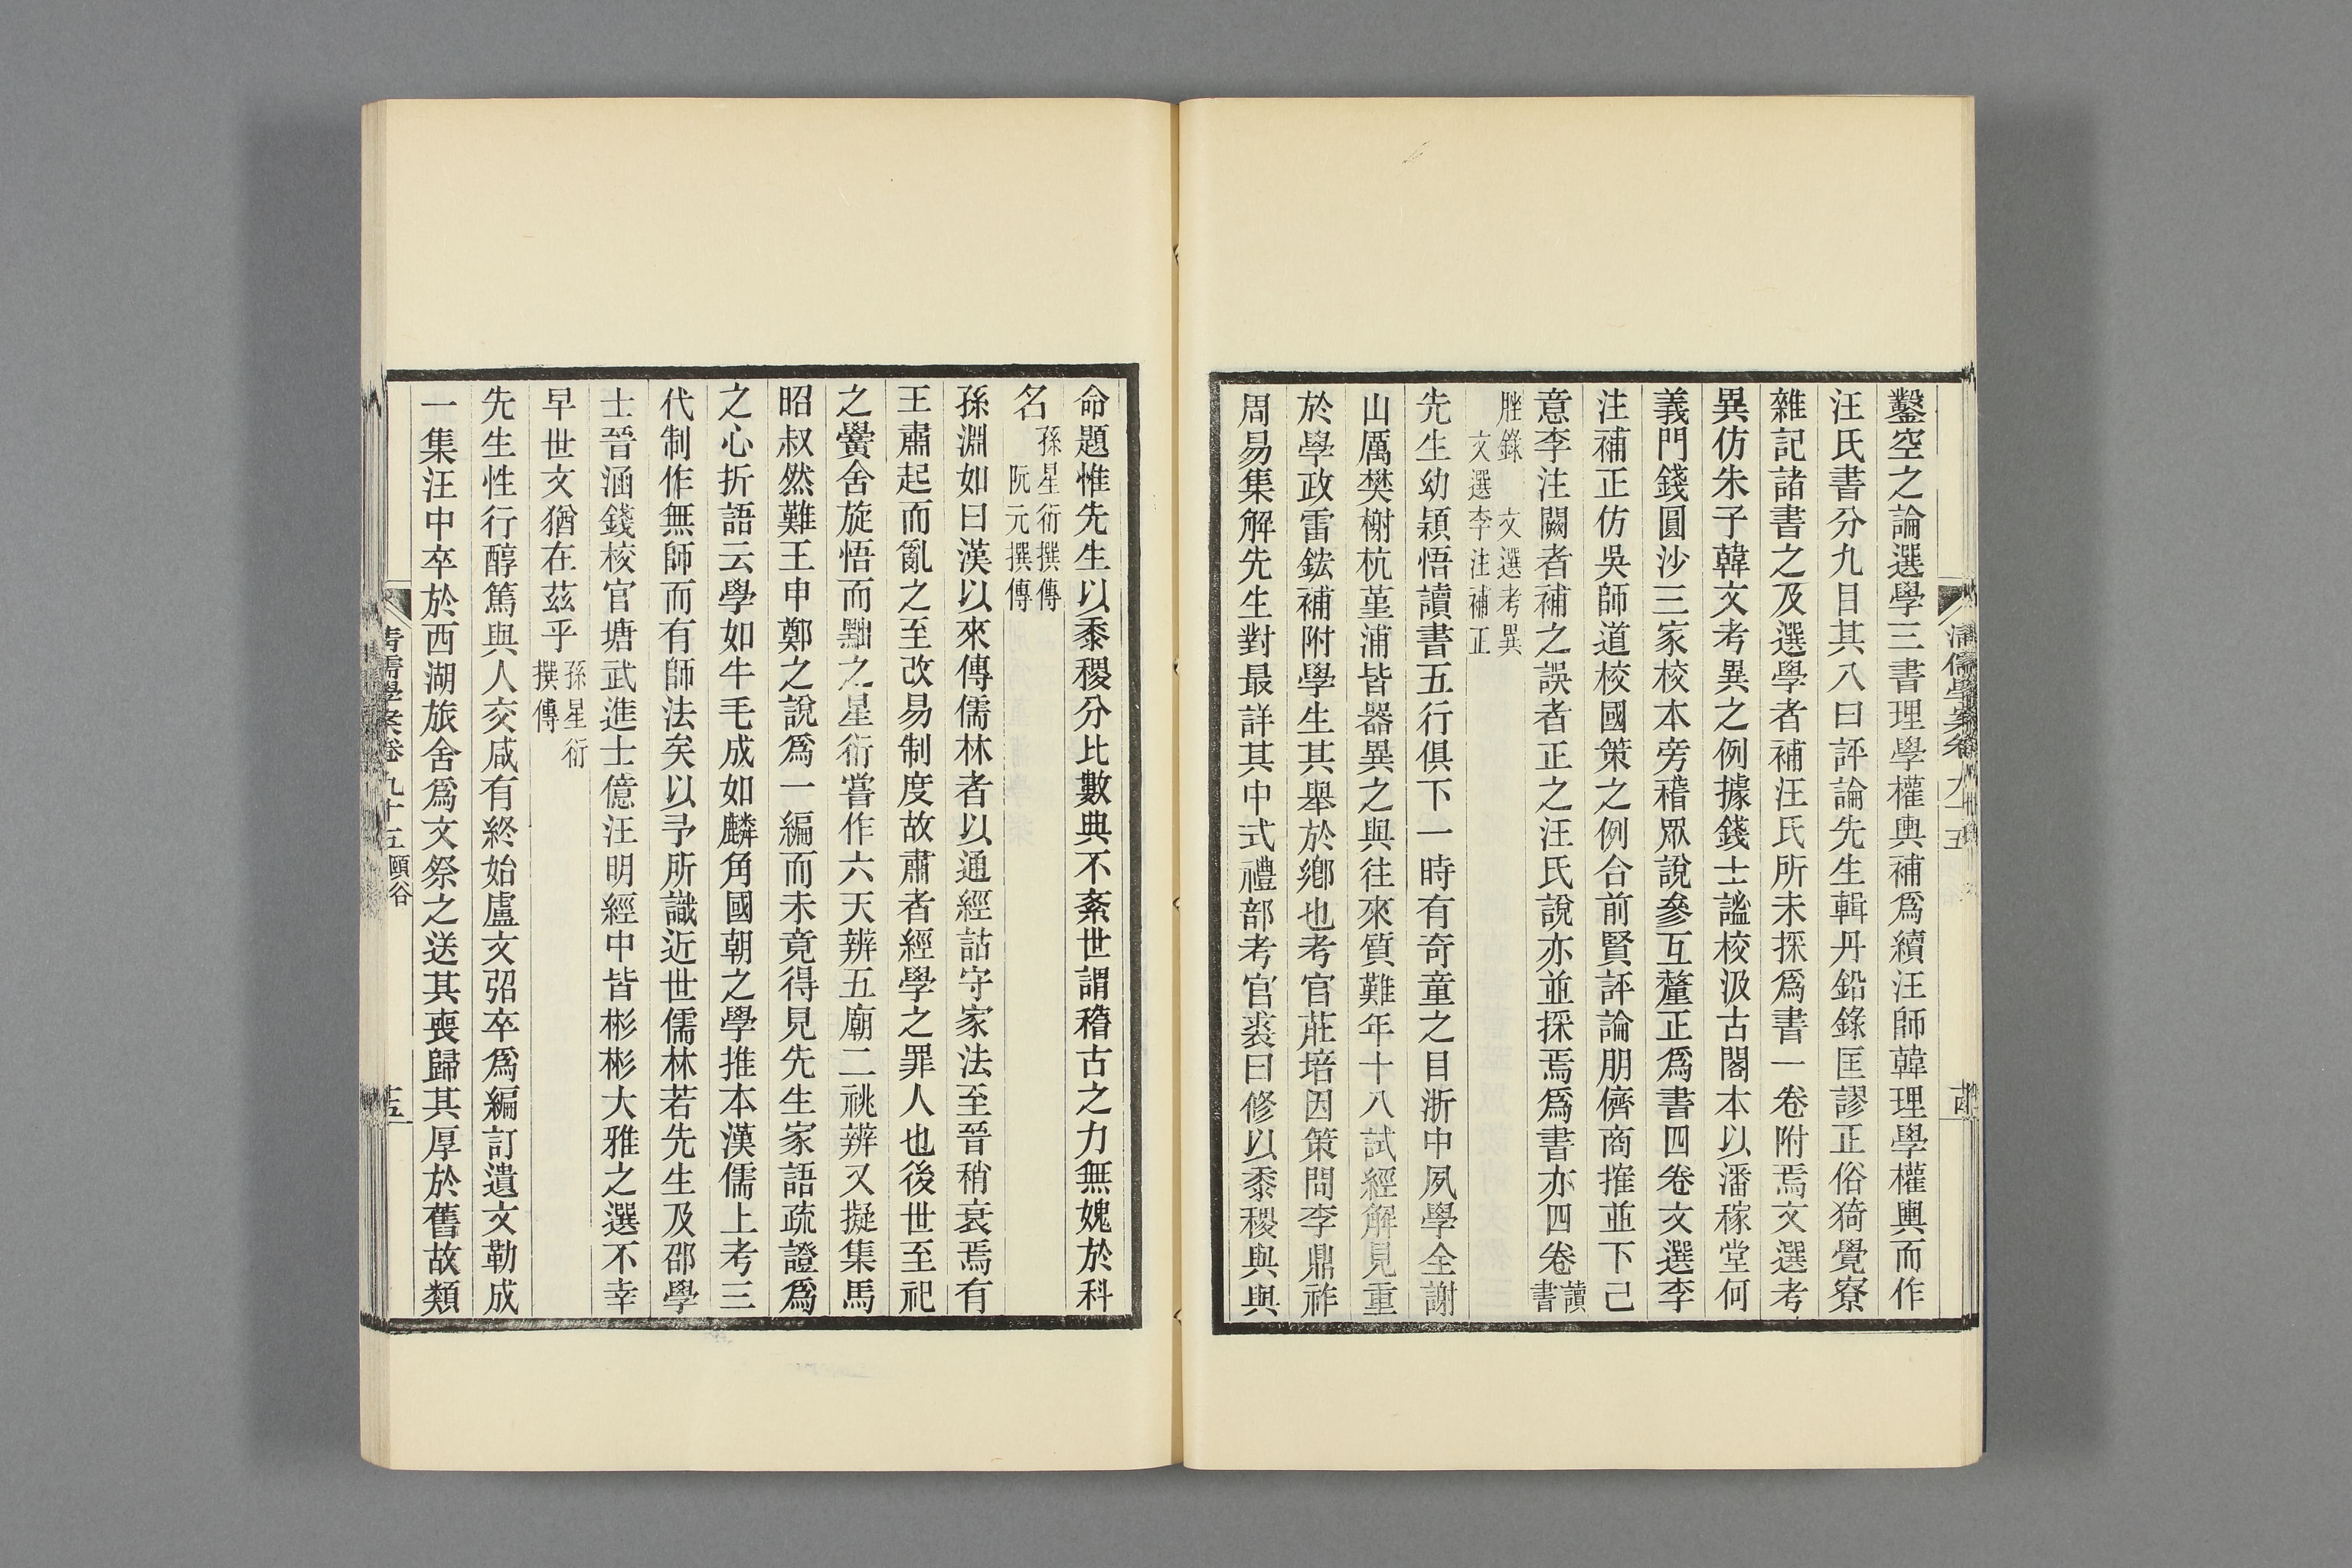 鑿空之論選學三書理學權輿補爲續汪師韓理學權輿而作
汪氏書分九目其八曰評論先生輯丹鉛錄匡謬正俗猗覺寮
雜記諸書之及選學者補汪氏所未採爲書一卷附焉文選考
異仿朱子韓文考異之例據錢士謐校汲古閣本以潘稼堂何
義門錢圓沙三家校本旁稽眾說參互釐正爲書四卷文選李
注補正仿吳師道校國策之例合前賢評論朋儕商搉並下己
意李注闕者補之誤者正之汪氏說亦並採焉爲書亦四卷讀書
脞錄 文選考異
文選李注補正
先生幼穎悟讀書五行俱下一時有奇童之目浙中夙學全謝
山厲樊榭杭堇浦皆器異之與往來質難年十八試經解見重
於學政雷鋐補附學生其舉於鄉也考官莊培因策問李鼎祚
周易集解先生對最詳其中式禮部考官裘曰修以黍稷與與
清儒學案卷九十五
命題惟先生以黍稷分比數典不紊世謂稽古之力無媿於科
名孫星衍撰傳
阮元撰傳
孫淵如曰漢以來傳儒林者以通經詁守家法至晉稍衰焉有
王肅起而亂之至改易制度故肅者經學之罪人也後世至祀
之黌舍旋悟而黜之星衍嘗作六天辨五廟二祧辨又擬集馬
昭叔然難王申鄭之說爲一編而未竟得見先生家語疏證爲
之心折語云學如牛毛成如麟角國朝之學推本漢儒上考三
代制作無師而有師法矣以予所識近世儒林若先生及邵學
士晉涵錢校官塘武進士億汪明經中皆彬彬大雅之選不幸
早世文猶在茲乎孫星衍
撰傳
先生性行醇篤與人交咸有終始盧文弨卒爲編訂遺文勒成
一集汪中卒於西湖旅舍爲文祭之送其喪歸其厚於舊故類
清儒學案卷九十五 頤谷 十五